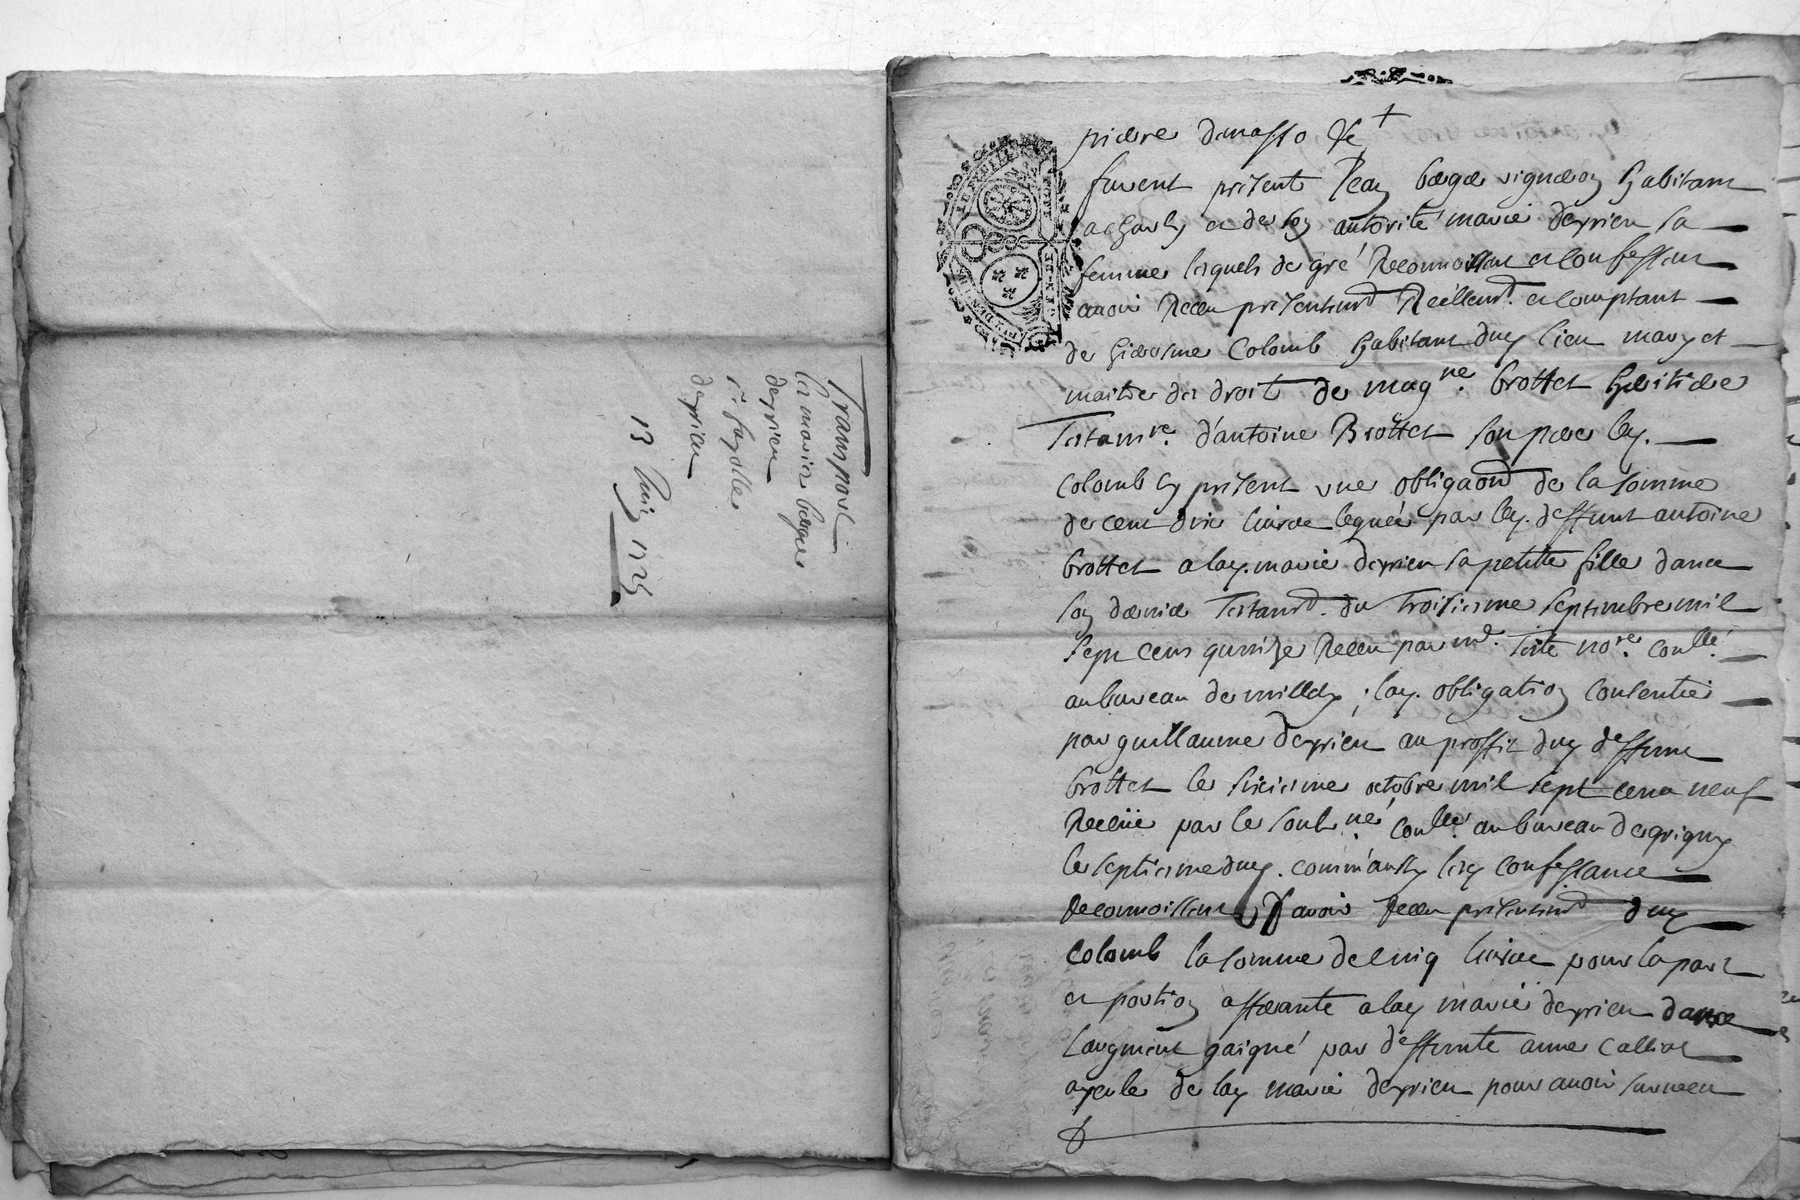 Transport
marie
deyrieu
deyrieu
13 Juin 1725
pierre
furent presents Jean vigneron habitant
et de son autorité marie deyrieu sa
femme lesquels de gré Reconnoissent et confessent
avoir Receu presentemt Reellemt et comptant
de hierosme Colomb habitant dud lieu mary et
maitre des droits de magne brottet heritiere
Testamre d'antoine Brottet son pere led.
Colomb cy present une obligaon de la somme
de cent dix livres leguée par led. deffunt antoine
brottet a lad. marie deyrieu sa petite fille dans
son dernier Testamt du Troisieme septembre mil
sept cens quinze Receu par me. Teste nore. conllé
au bureau de millery ; lad. obligation consentie
par guillaume deyrieu au proffit dud deffunt
brottet le sixieme octobre mil sept cens neuf
Receüe par le soubsné conllée au bureau de grigny
le septieme dud. comm'aussy lesd confessants
Reconnoissent d'avoir Receu presentemt dud
Colomb la somme de cinq livres pour la part
et portion afferante a lad marie deyrieu dans
l'augment gaigné par deffunte anne
ayeule de lad marie deyrieu pour avoir survecu